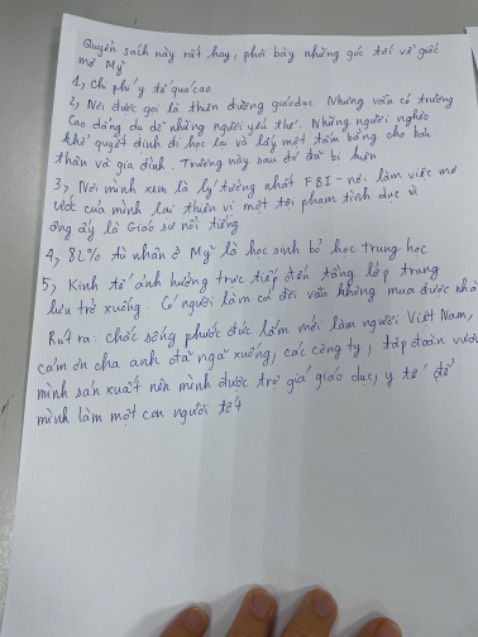 Quyển sách này rất hay, phơi bày những góc tối về giấc
mơ Mỹ
1, Chi phí y tế quá cao
2, Nơi được gọi là thiên đường giáo dục. Nhưng vẫn có trường
Cao đẳng dụ dỗ những người yếu thế. Những người nghèo
khổ quyết định đi học lại và lấy một tấm bằng cho bản
thân và gia đình. Trường này sau đó đã bị kiện
3, Nơi mình xem là lý tưởng nhất FBI - nơi làm việc mơ
ước của mình lại thiên vị một tội phạm tình dục vì
ông ấy là Giáo sư nổi tiếng
4, 82% tù nhân ở Mỹ là học sinh bỏ học trung học
5, Kinh tế ảnh hưởng trực tiếp đến tầng lớp trung
lưu trở xuống. Có người làm cả đời vẫn không mua được nhà
Rút ra: chắc sống phước đức lắm mới làm người Việt Nam,
cảm ơn cha anh đã ngã xuống, các công ty, tập đoàn
mình sản xuất nên mình được trợ giá giáo dục, y tế để
mình làm một con người tốt